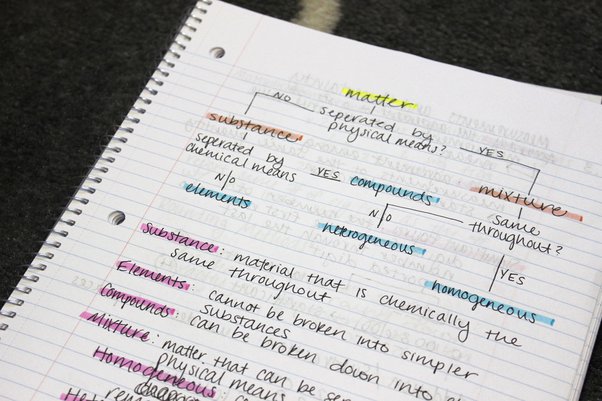 matter
NO
seperated by
physical means?
YES
substance
seperated by
chemical means
YES
compounds
mixture
NO
elements
same
throughout?
NO
heterogeneous
YES
homogeneous
Substance: material that is chemically the
same throughout
Elements: cannot be broken into simpler
substances
Compounds: can be broken down into
Mixture: matter that can be se
physical means
Homogeneous: can